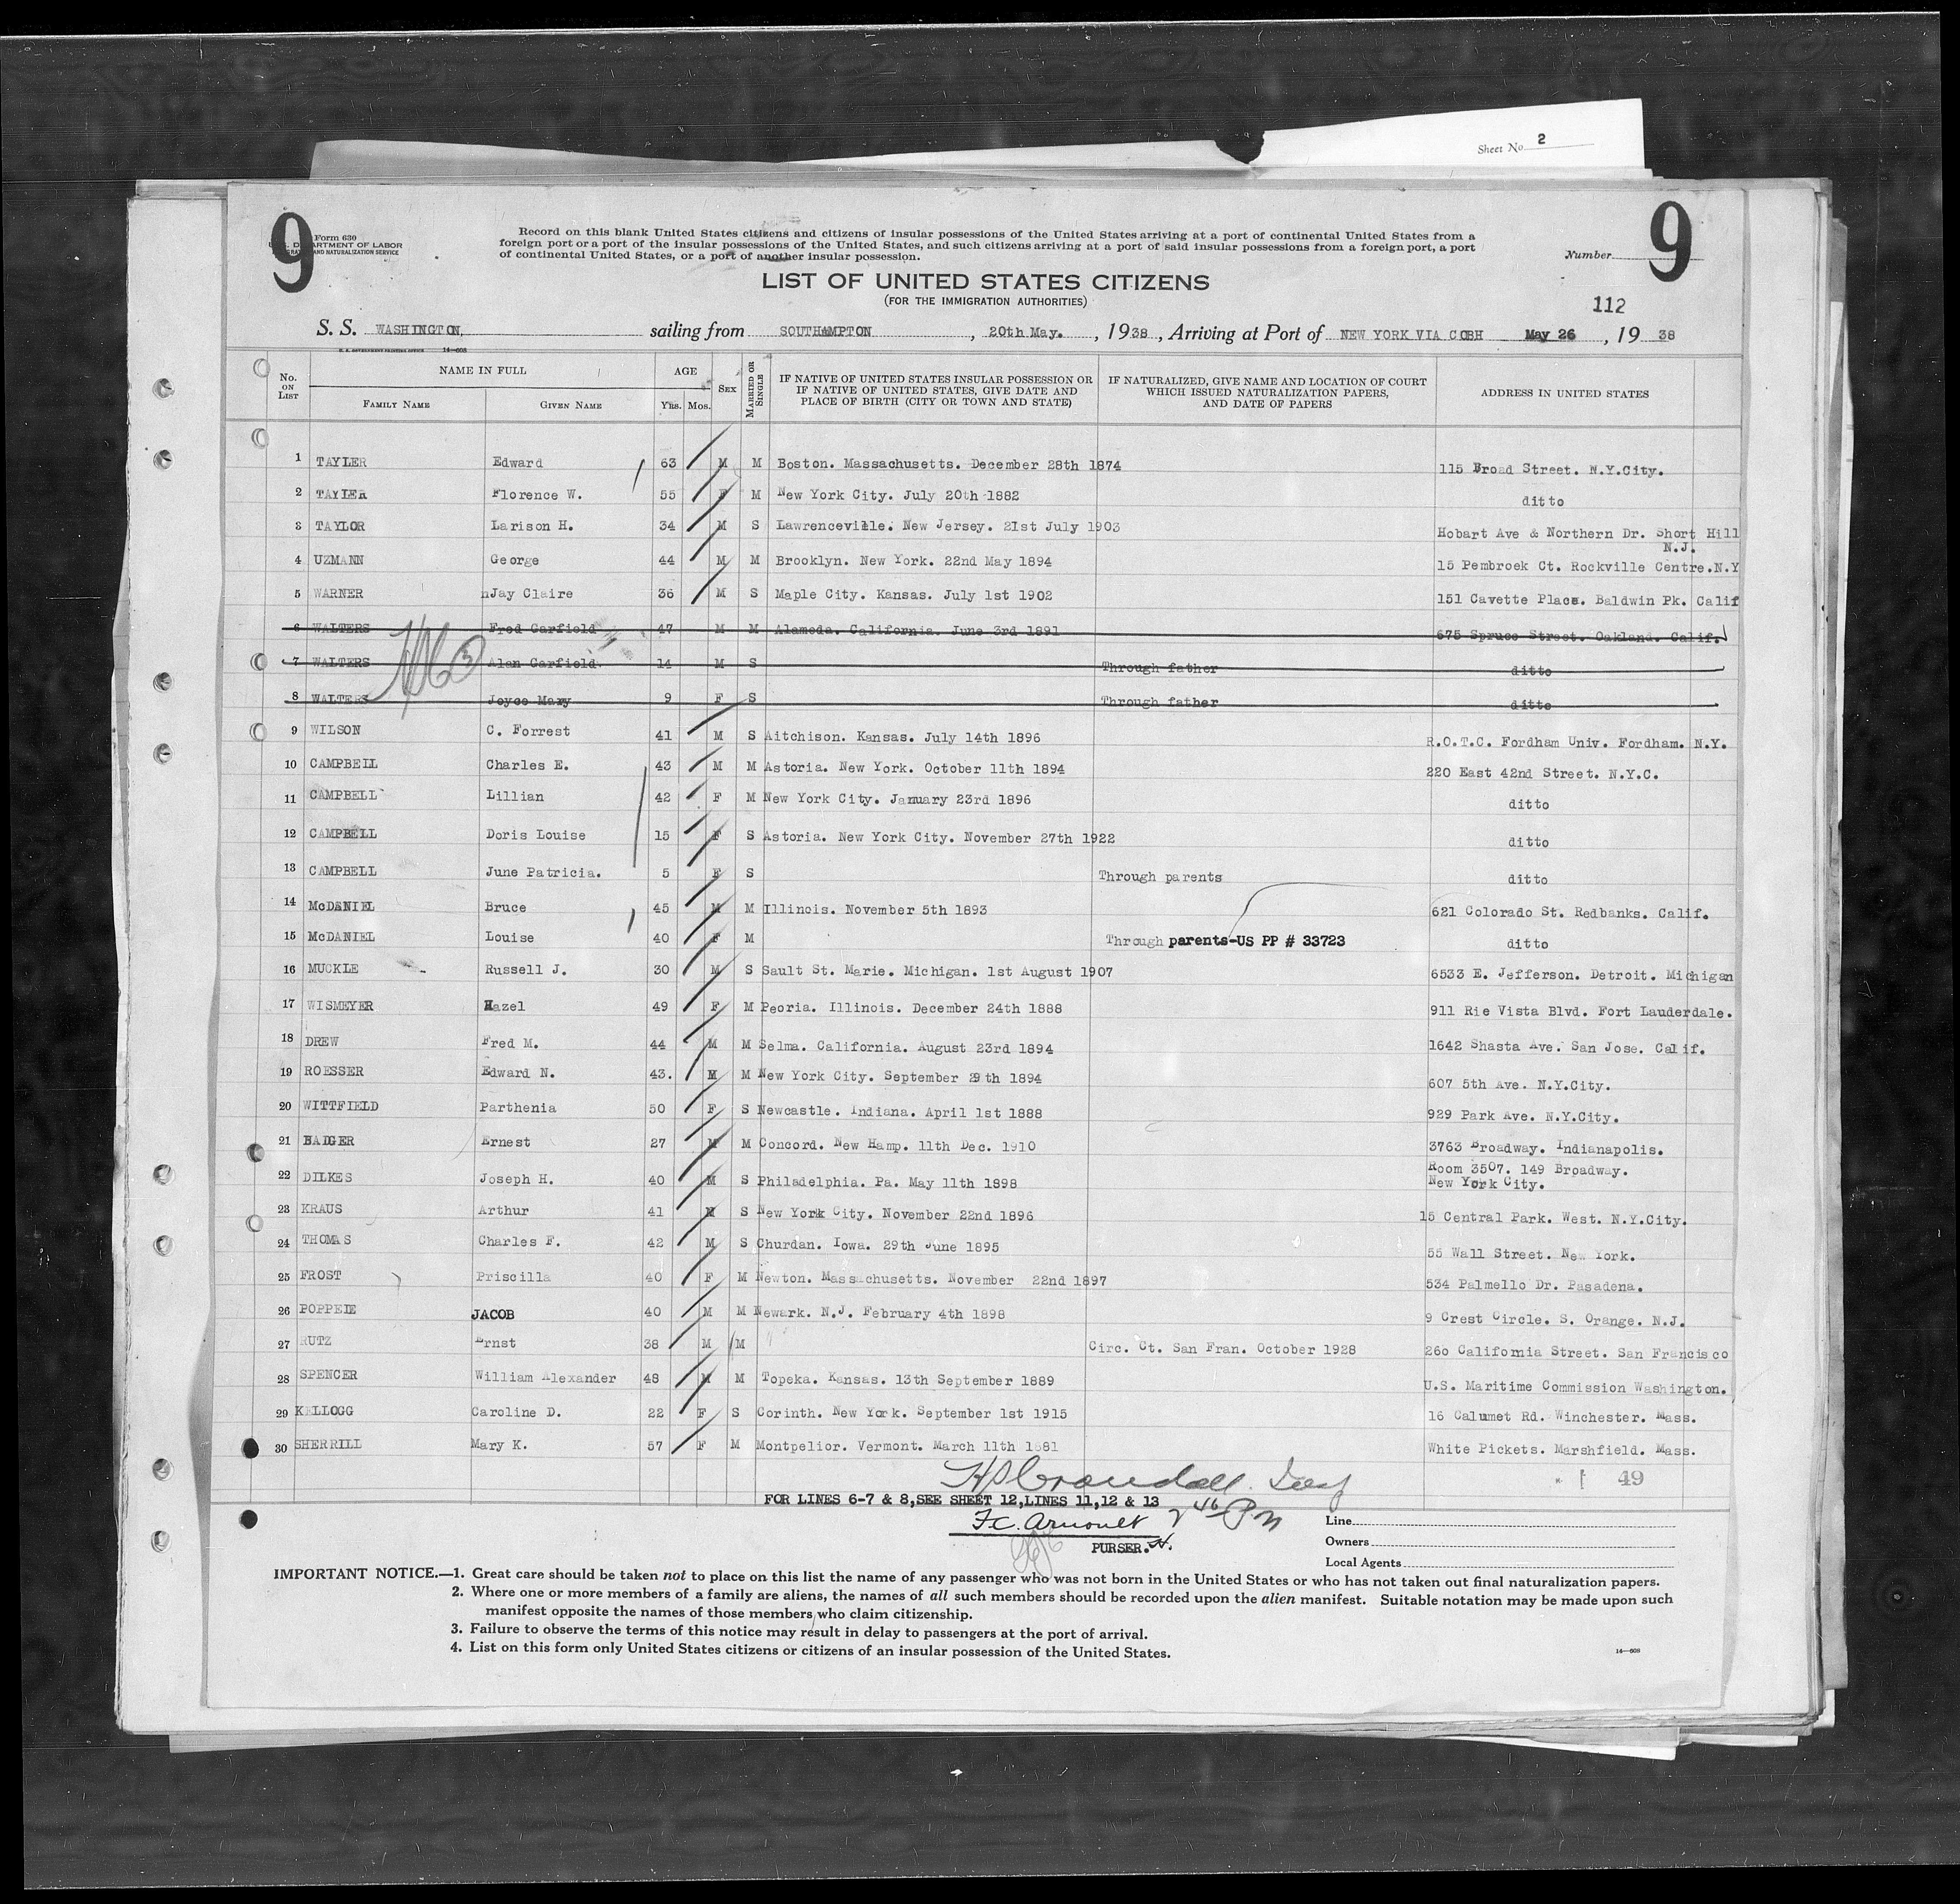 Sheet No. 2
9 9
Form 630
U.S. DEPARTMENT OF LABOR
IMMIGRATION AND NATURALIZATION SERVICE
Record on this blank United States citizens and citizens of insular possessions of the United States arriving at a port of continental United States from a
foreign port or a port of the insular possessions of the United States, and such citizens arriving at a port of said insular possessions from a foreign port, a port
of continental United States, or a port of another insular possession.
Number
LIST OF UNITED STATES CITIZENS
(FOR THE IMMIGRATION AUTHORITIES)
112
S. S. WASHINGTON, sailing from SOUTHAMPTON, 20th May., 1938, Arriving at Port of NEW YORK VIA COBH May 26, 1938
U. S. GOVERNMENT PRINTING OFFICE 14—608
No. ON LIST NAME IN FULL AGE SEX MARRIED OR SINGLE IF NATIVE OF UNITED STATES INSULAR POSSESSION OR IF NATIVE OF UNITED STATES, GIVE DATE AND PLACE OF BIRTH (CITY OR TOWN AND STATE) IF NATURALIZED, GIVE NAME AND LOCATION OF COURT WHICH ISSUED NATURALIZATION PAPERS, AND DATE OF PAPERS ADDRESS IN UNITED STATES
FAMILY NAME GIVEN NAME Yrs. Mos.
1 TAYLER Edward 63 M M Boston. Massachusetts. December 28th 1874 115 Broad Street. N.Y.City.
2 TAYLER Florence W. 55 F M New York City. July 20th 1882 ditto
3 TAYLOR Larison H. 34 M S Lawrenceville. New Jersey. 21st July 1903 Hobart Ave & Northern Dr. Short Hill
N.J.
4 UZMANN George 44 M M Brooklyn. New York. 22nd May 1894 15 Pembroek Ct. Rockville Centre.N.Y
5 WARNER nJay Claire 36 M S Maple City. Kansas. July 1st 1902 151 Cavette Place. Baldwin Pk. Calif
6 WALTERS Fred Garfield 47 M M Alameda. California. June 3rd 1891 675 Spruce Street. Oakland. Calif.
7 WALTERS Alan Garfield. 14 M S Through father ditto
8 WALTERS Joyce Mary 9 F S Through father ditto
9 WILSON C. Forrest 41 M S Aitchison. Kansas. July 14th 1896 R.O.T.C. Fordham Univ. Fordham. N.Y.
10 CAMPBELL Charles E. 43 M M Astoria. New York. October 11th 1894 220 East 42nd Street. N.Y.C.
11 CAMPBELL Lillian 42 F M New York City. January 23rd 1896 ditto
12 CAMPBELL Doris Louise 15 F S Astoria. New York City. November 27th 1922 ditto
13 CAMPBELL June Patricia. 5 F S Through parents ditto
14 McDANIEL Bruce 45 M M Illinois. November 5th 1893 621 Colorado St. Redbanks. Calif.
15 McDANIEL Louise 40 F M Through parents-US PP # 33723 ditto
16 MUCKLE Russell J. 30 M S Sault St. Marie. Michigan. 1st August 1907 6533 E. Jefferson. Detroit. Michigan
17 WISMEYER Hazel 49 F M Peoria. Illinois. December 24th 1888 911 Rie Vista Blvd. Fort Lauderdale.
18 DREW Fred M. 44 M M Selma. California. August 23rd 1894 1642 Shasta Ave. San Jose. Calif.
19 ROESSER Edward N. 43. M M New York City. September 29th 1894 607 5th Ave. N.Y.City.
20 WITTFIELD Parthenia 50 F S Newcastle. Indiana. April 1st 1888 929 Park Ave. N.Y.City.
21 BADGER Ernest 27 M M Concord. New Hamp. 11th Dec. 1910 3763 Broadway. Indianapolis.
22 DILKES Joseph H. 40 M S Philadelphia. Pa. May 11th 1898 Room 3507. 149 Broadway.
New York City.
23 KRAUS Arthur 41 M S New York City. November 22nd 1896 15 Central Park. West. N.Y.City.
24 THOMAS Charles F. 42 M S Churdan. Iowa. 29th June 1895 55 Wall Street. New York.
25 FROST Priscilla 40 F M Newton. Massachusetts. November 22nd 1897 534 Palmello Dr. Pasadena.
26 POPPEIE JACOB 40 M M Newark. N.J. February 4th 1898 9 Crest Circle. S. Orange. N.J.
27 RUTZ Ernst 38 M M Circ. Ct. San Fran. October 1928 260 California Street. San Francisco
28 SPENCER William Alexander 48 M M Topeka. Kansas. 13th September 1889 U.S. Maritime Commission Washington.
29 KELLOGG Caroline D. 22 F S Corinth. New York. September 1st 1915 16 Calumet Rd. Winchester. Mass.
30 SHERRILL Mary K. 57 F M Montpelior. Vermont. March 11th 1881 White Pickets. Marshfield. Mass.
49
FOR LINES 6-7 & 8,SEE SHEET 12,LINES 11,12 & 13
F.C. Arnoult
PURSER.
Line
Owners
Local Agents
IMPORTANT NOTICE.—1. Great care should be taken not to place on this list the name of any passenger who was not born in the United States or who has not taken out final naturalization papers.
2. Where one or more members of a family are aliens, the names of all such members should be recorded upon the alien manifest. Suitable notation may be made upon such
manifest opposite the names of those members who claim citizenship.
3. Failure to observe the terms of this notice may result in delay to passengers at the port of arrival.
4. List on this form only United States citizens or citizens of an insular possession of the United States.
14—608